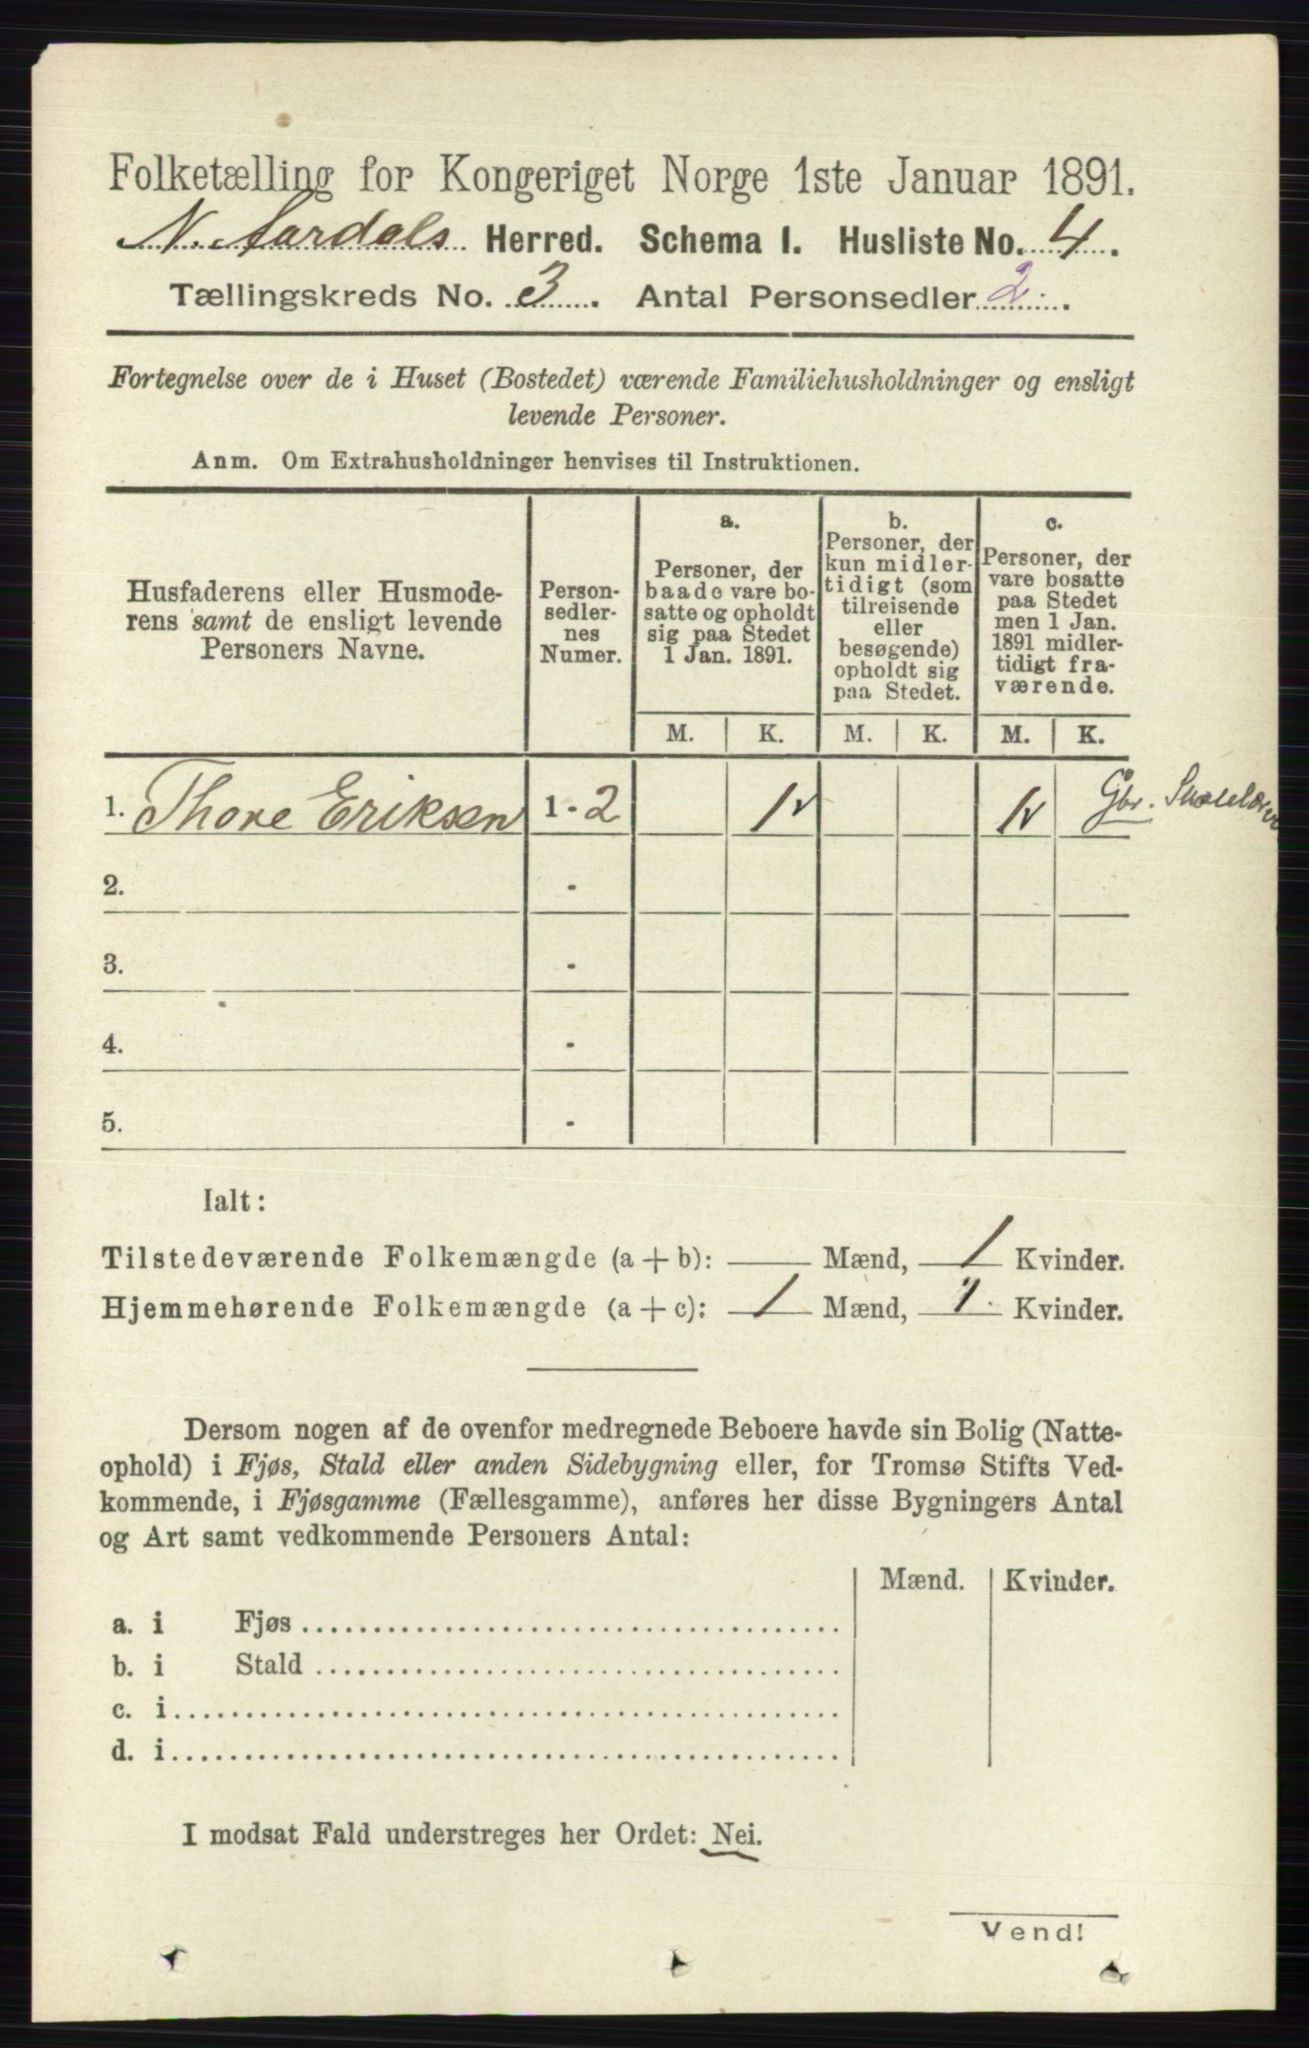 Folketælling for Kongeriget Norge 1ste Januar 1891.
N. Aardals Herred. Schema I. Husliste No. 4.
Tællingskreds No. 3. Antal Personsedler 2.
Fortegnelse over de i Huset (Bostedet) værende Familiehusholdninger og ensligt
levende Personer.
Anm. Om Extrahusholdninger henvises til Instruktionen.
Husfaderens eller Husmode-
rens samt de ensligt levende
Personers Navne.
Person-
sedler-
nes
Numer.
a.
Personer, der
baade vare bo-
satte og opholdt
sig paa Stedet
1 Jan. 1891.
b.
Personer, der
kun midler-
tidigt (som
tilreisende
eller
besøgende)
opholdt sig
paa Stedet.
c.
Personer, der
vare bosatte
paa Stedet
men 1 Jan.
1891 midler-
tidigt fra-
værende.
M. K. M. K. M. K.
1. Thore Eriksen 1 - 2 1 1 Gbr.
2. -
3. -
4. -
5. -
Ialt:
Tilstedeværende Folkemængde (a + b): — Mænd, 1 Kvinder.
Hjemmehørende Folkemængde (a + c): 1 Mænd, 1 Kvinder.
Dersom nogen af de ovenfor medregnede Beboere havde sin Bolig (Natte-
ophold) i Fjøs, Stald eller anden Sidebygning eller, for Tromsø Stifts Ved-
kommende, i Fjøsgamme (Fællesgamme), anføres her disse Bygningers Antal
og Art samt vedkommende Personers Antal:
Mænd. Kvinder.
a. i Fjøs
b. i Stald
c. i
d. i
I modsat Fald understreges her Ordet: Nei.
Vend!